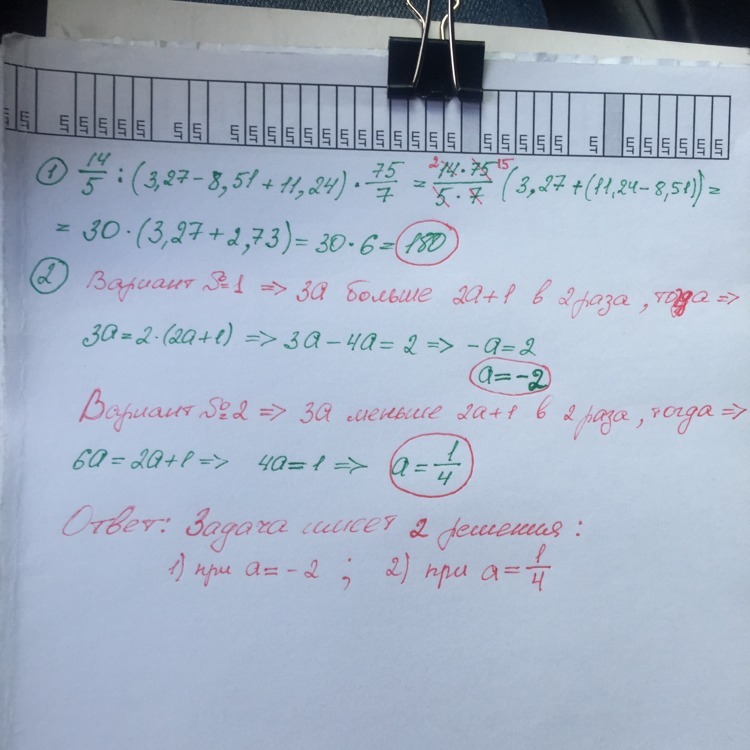 1 14/5 : (3,27 - 8,51 + 11,24) · 75/7 = 2 14 · 75 15 / 5 · 7 (3,27 + (11,24 - 8,51)) =
= 30 · (3,27 + 2,73) = 30 · 6 = 180
2 Вариант №1 => 3a больше 2a+1 в 2 раза, тогда =>
3a = 2·(2a+1) => 3a - 4a = 2 => -a = 2
a = -2
Вариант №2 => 3a меньше 2a+1 в 2 раза, тогда =>
6a = 2a+1 => 4a = 1 => a = 1/4
Ответ: Задача имеет 2 решения:
1) при a = -2 ; 2) при a = 1/4